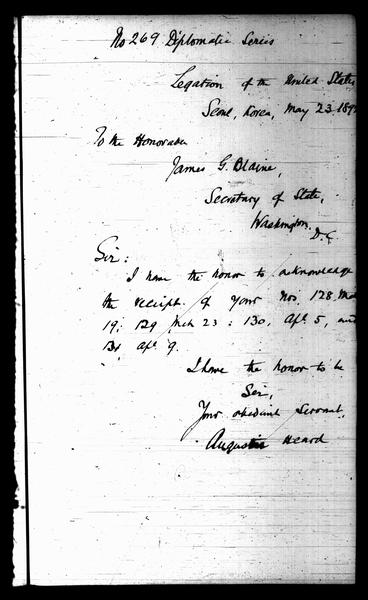 No 269 Diplomatic Series
Legation of the United States
Seoul, Korea, May 23 189
To the Honorable
James G. Blaine,
Secretary of State,
Washington,
D.C.
Sir:
I have the honor to acknowledge
the receipt of your Nos. 128, Mch
19; 129 Mch 23; 130, Apl. 5, and
131 Apl. 9.
I have the honor to be
Sir,
Your obedient Servant,
Augustine Heard